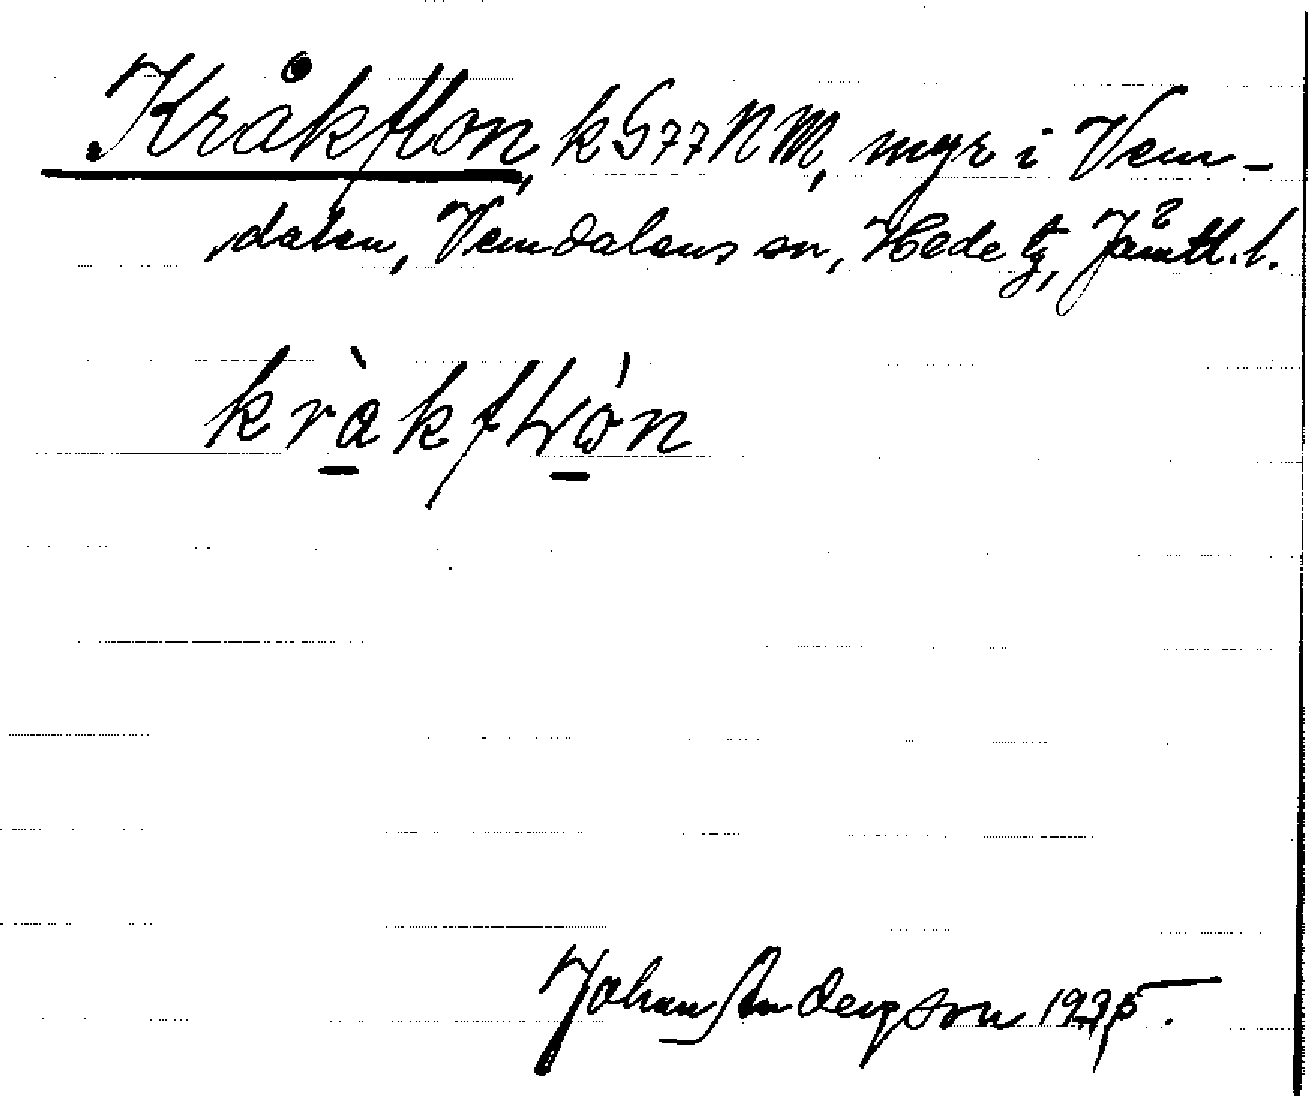 Kråkflon, k G77 NM, myr i Vem-
dalen, Vemdalens sn, Hede tg, Jämtl. l.
kràkflón
Johan Anderson 1935.